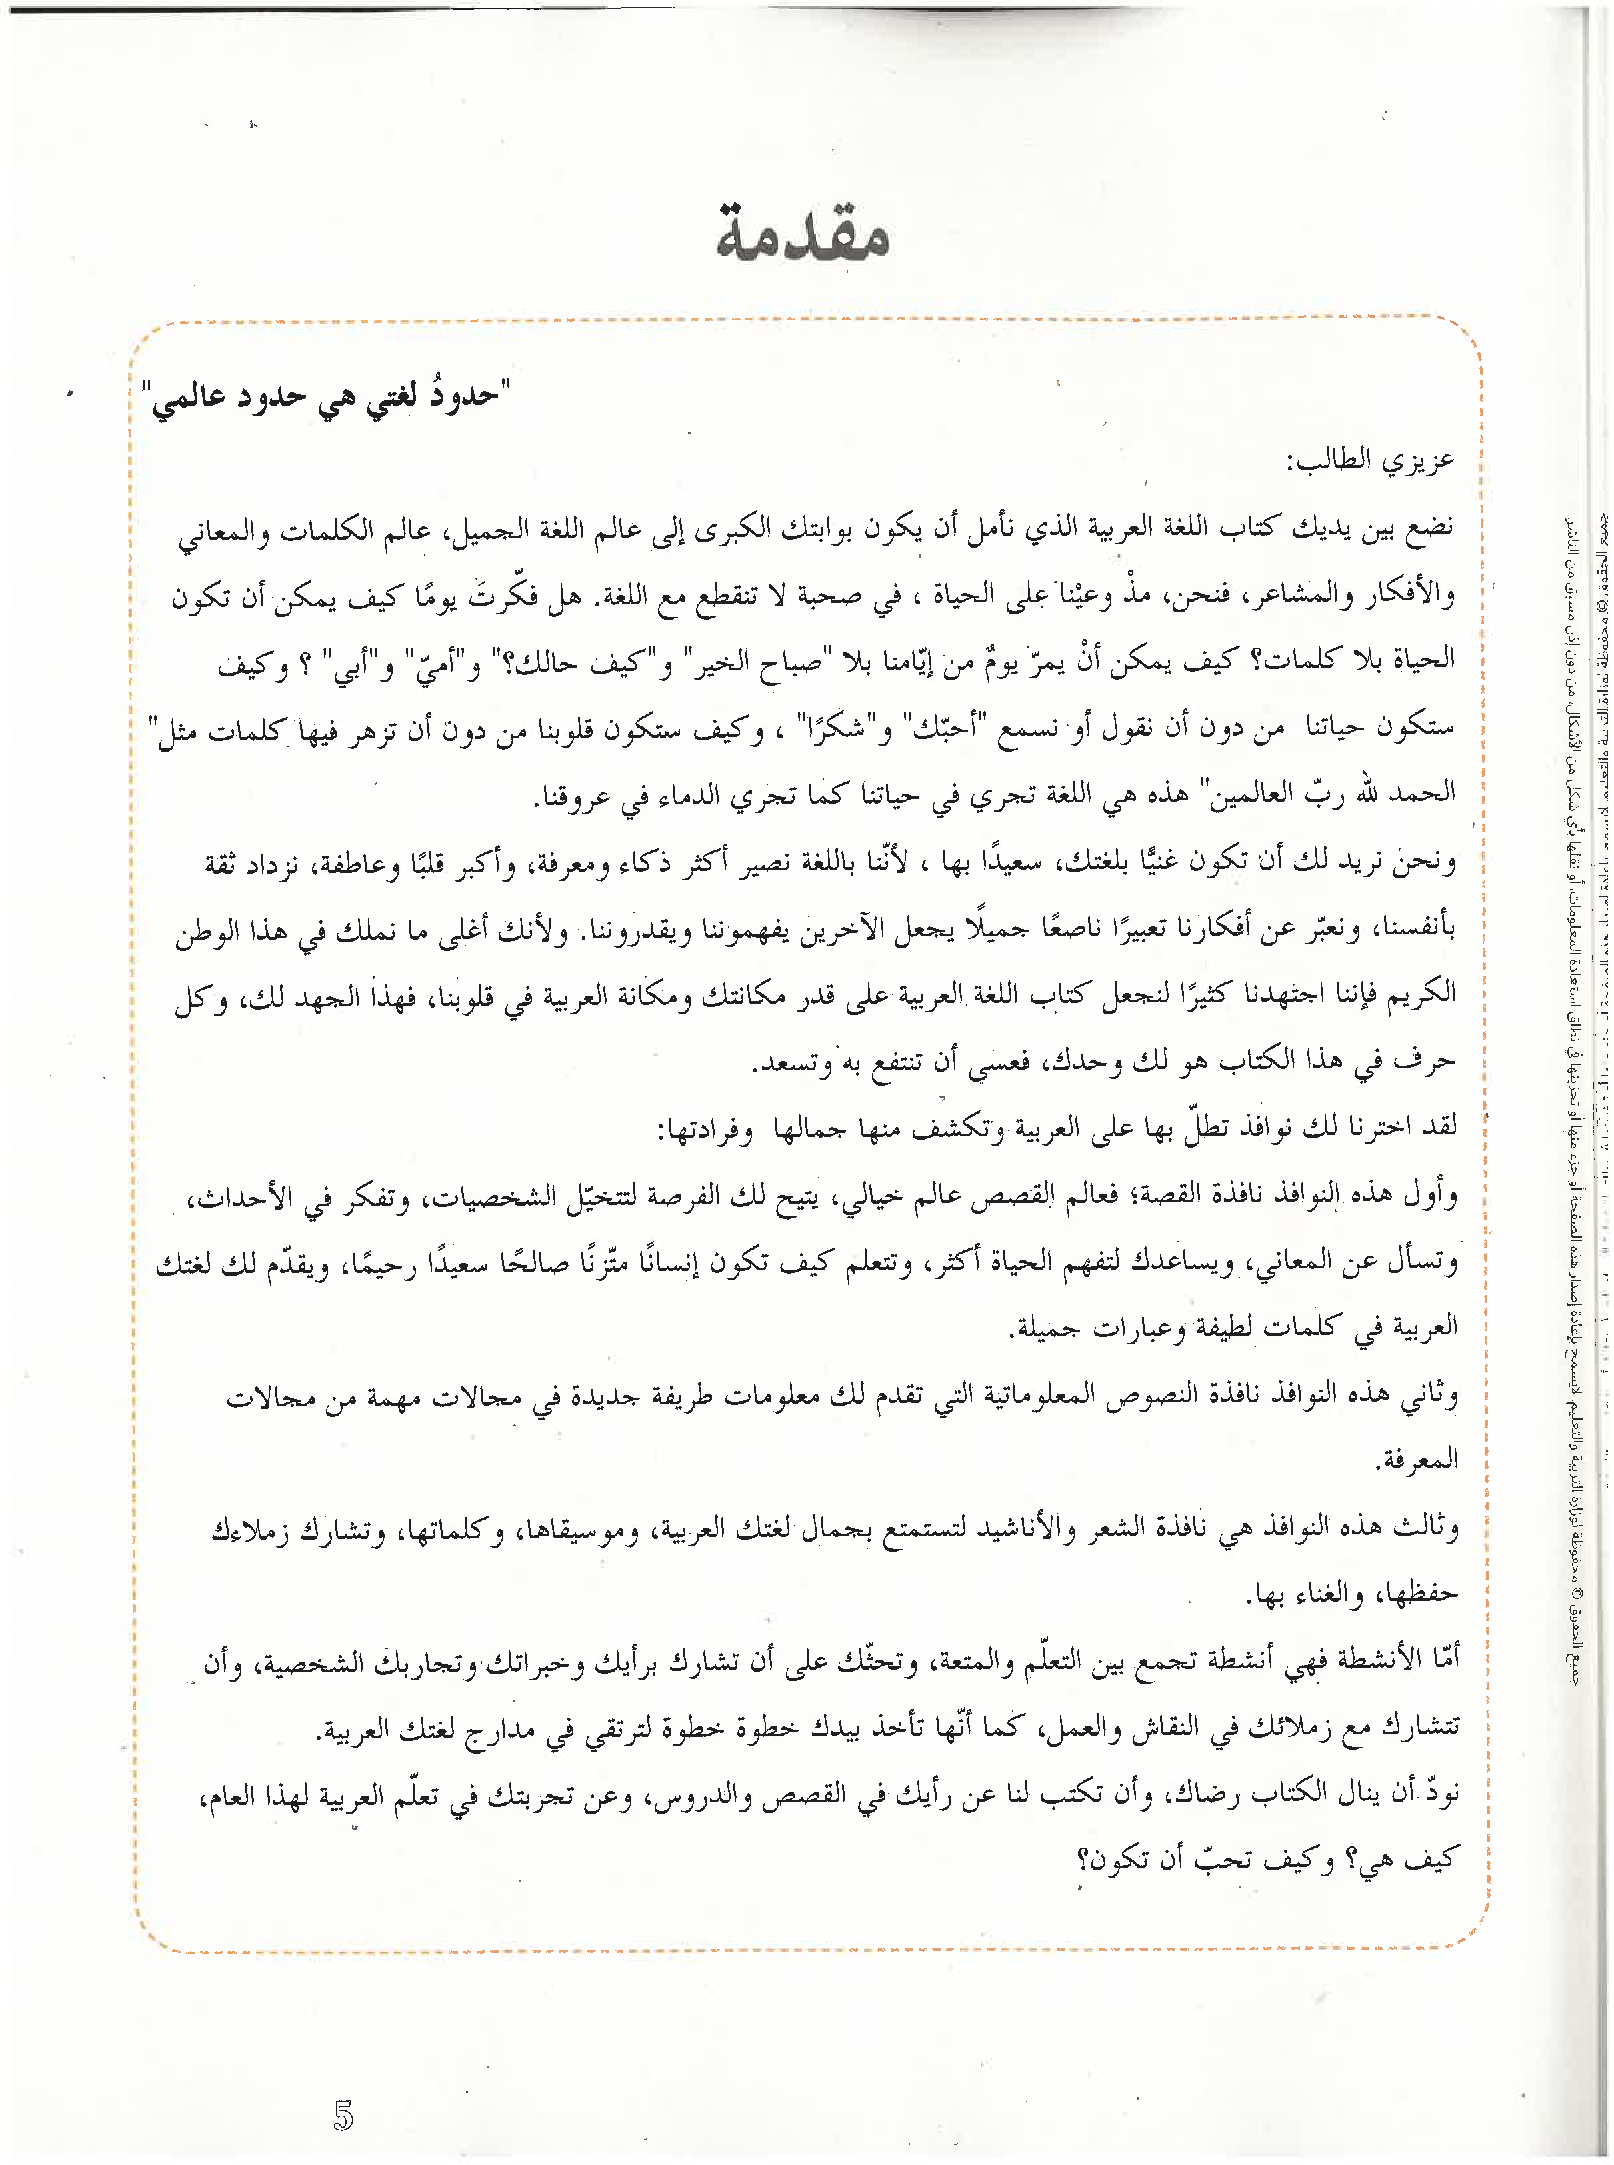 مقدمة
"حدودُ لغتي هي حدود عالمي"
عزيزي الطالب:
نضع بين يديك كتاب اللغة العربية الذي نأمل أن يكون بوابتك الكبرى إلى عالم اللغة الجميل، عالم الكلمات والمعاني
والأفكار والمشاعر، فنحن، مذْ وعيْنا على الحياة ، في صحبة لا تنقطع مع اللغة. هل فكّرتَ يومًا كيف يمكن أن تكون
الحياة بلا كلمات؟ كيف يمكن أنْ يمرّ يومٌ من إيّامنا بلا "صباح الخير" و"كيف حالك؟" و"أميّ" و"أبي" ؟ وكيف
ستكون حياتنا من دون أن نقول أو نسمع "أحبّك" و"شكرًا" ، وكيف ستكون قلوبنا من دون أن تزهر فيها كلمات مثل"
الحمد لله ربّ العالمين" هذه هي اللغة تجري في حياتنا كما تجري الدماء في عروقنا.
ونحن نريد لك أن تكون غنيًّا بلغتك، سعيدًا بها ، لأنّنا باللغة نصير أكثر ذكاء ومعرفة، وأكبر قلبًا وعاطفة، نزداد ثقة
بأنفسنا، ونعبّر عن أفكارنا تعبيرًا ناصعًا جميلًا يجعل الآخرين يفهموننا ويقدروننا. ولأنك أغلى ما نملك في هذا الوطن
الكريم فإننا اجتهدنا كثيرًا لنجعل كتاب اللغة العربية على قدر مكانتك ومكانة العربية في قلوبنا، فهذا الجهد لك، وكل
حرف في هذا الكتاب هو لك وحدك، فعسى أن تنتفع به وتسعد.
لقد اخترنا لك نوافذ تطلّ بها على العربية وتكشف منها جمالها وفرادتها:
وأول هذه النوافذ نافذة القصة؛ فعالم القصص عالم خيالي، يتيح لك الفرصة لتتخيّل الشخصيات، وتفكر في الأحداث،
وتسأل عن المعاني، ويساعدك لتفهم الحياة أكثر، وتتعلم كيف تكون إنسانًا متّزنًا صالحًا سعيدًا رحيمًا، ويقدّم لك لغتك
العربية في كلمات لطيفة وعبارات جميلة.
وثاني هذه النوافذ نافذة النصوص المعلوماتية التي تقدم لك معلومات طريفة جديدة في مجالات مهمة من مجالات
المعرفة.
وثالث هذه النوافذ هي نافذة الشعر والأناشيد لتستمتع بجمال لغتك العربية، وموسيقاها، وكلماتها، وتشارك زملاءك
حفظها، والغناء بها.
أمّا الأنشطة فهي أنشطة تجمع بين التعلّم والمتعة، وتحثّك على أن تشارك برأيك وخبراتك وتجاربك الشخصية، وأن
تتشارك مع زملائك في النقاش والعمل، كما أنّها تأخذ بيدك خطوة خطوة لترتقي في مدارج لغتك العربية.
نودّ أن ينال الكتاب رضاك، وأن تكتب لنا عن رأيك في القصص والدروس، وعن تجربتك في تعلّم العربية لهذا العام،
كيف هي؟ وكيف تحبّ أن تكون؟
جميع الحقوق © محفوظة لوزارة التربية والتعليم لايسمح بإعادة إصدار هذه الصفحة أو جزء منها أو تخزينها في نطاق استعادة المعلومات، أو نقلها بأي شكل من الأشكال، من دون إذن مسبق من الناشر
5